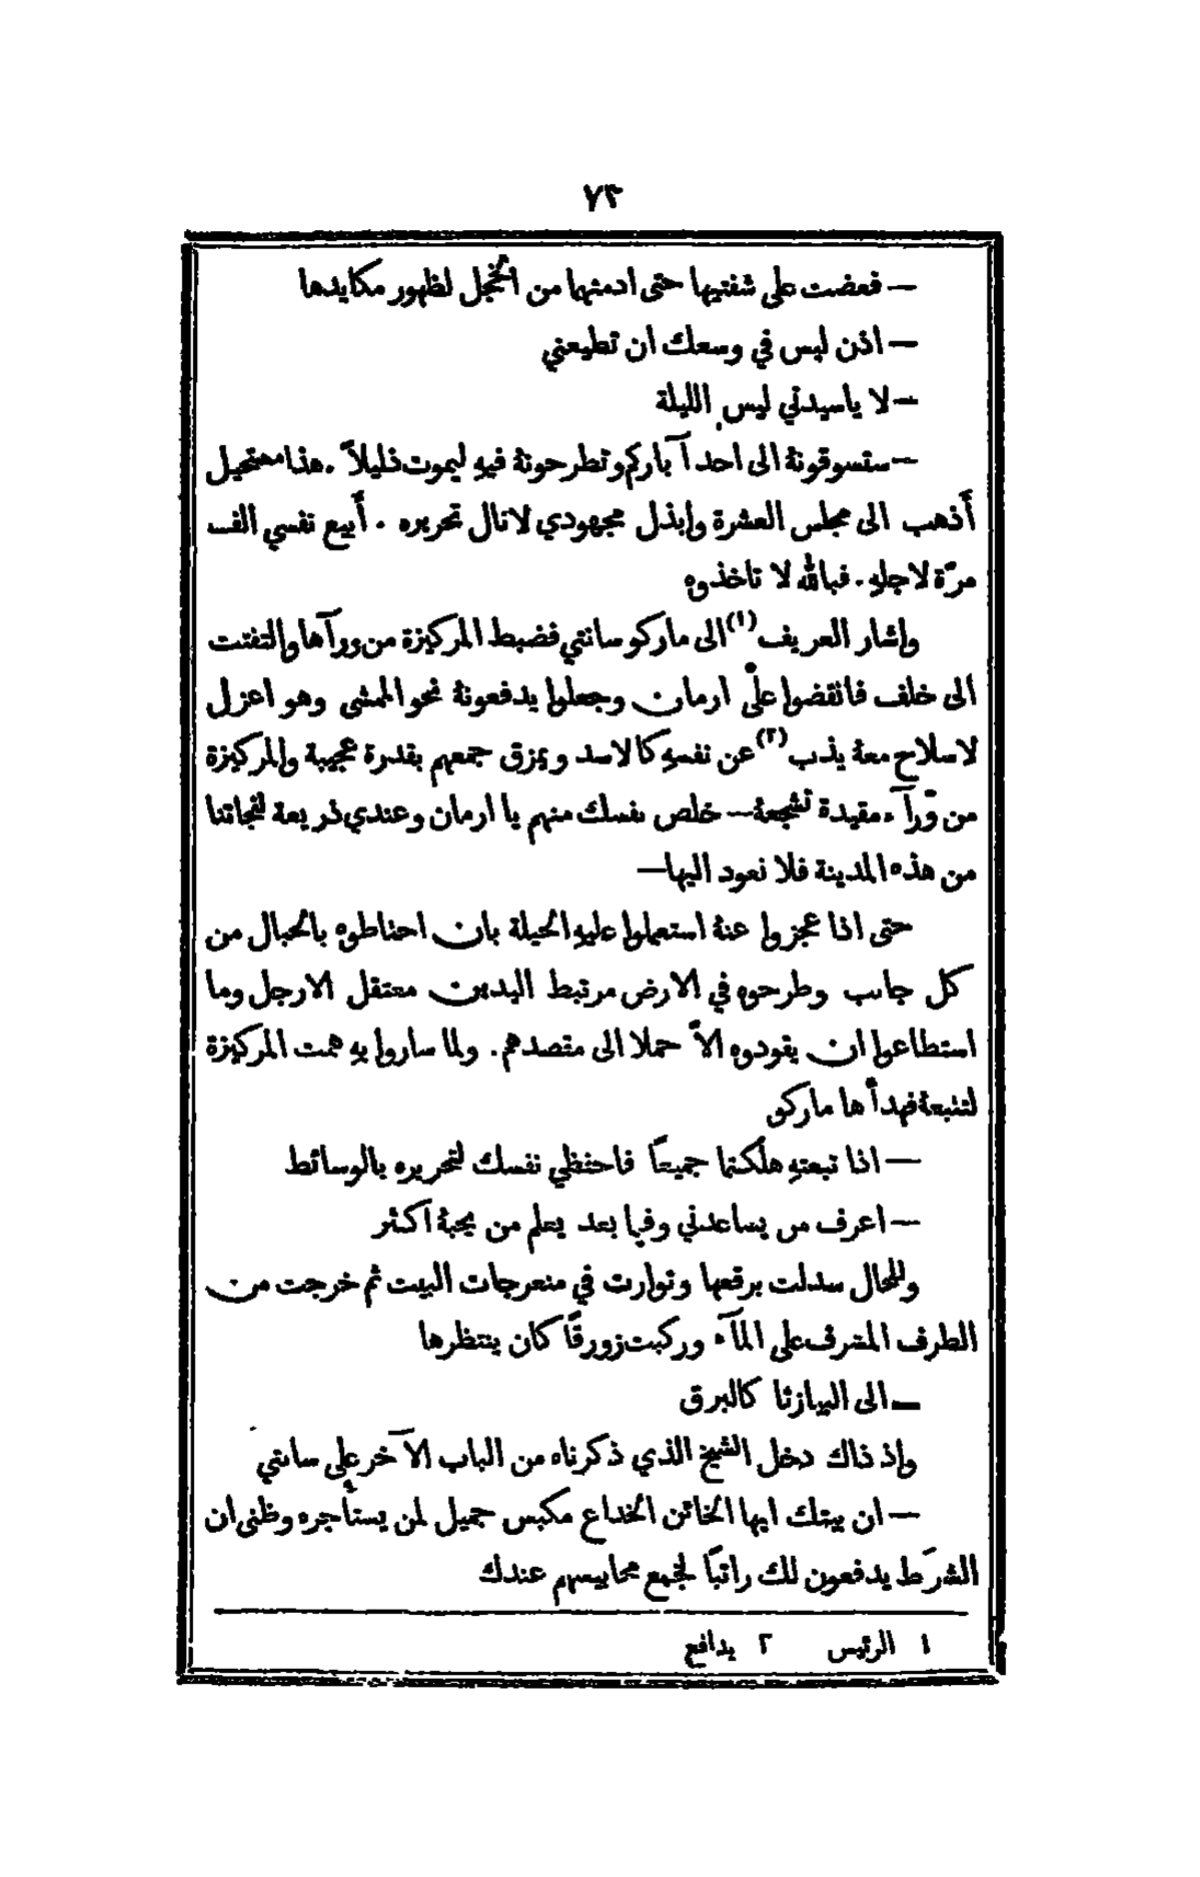 ٧٣
— فعضت على شفتيها حتى ادمتها من الخجل لظهور مكايدها
— اذن ليس في وسعك ان تطيعني
— لا ياسيدتي ليس الليلة
— ستسوقونهُ الى احد آباركم وتطرحونهُ فيهِ ليموت ذليلاً . هذا مستحيل
أذهب الى مجلس العشرة وابذل مجهودي لانال تحريره . أبيع نفسي الف
مرّة لاجلهِ . فبالله لا تاخذوهِ
واشار العريف (١) الى ماركو سانتي فضبط المركيزة من ورآها والتفتت
الى خلف فانقضوا على ارمان وجعلوا يدفعونهُ نحو الممشى وهو اعزل
لاسلاح معهُ يذب (٢) عن نفسهِ كالاسد ويمزق جمعهم بقدرة عجيبة والمركيزة
من ورآء مقيدة تشجعهُ — خلص نفسك منهم يا ارمان وعندي ذريعة لنجاتنا
من هذه المدينة فلا نعود اليها —
حتى اذا عجزوا عنهُ استعملوا عليهِ الحيلة بان احتاطوه بالحبال من
كل جانب وطرحوه في الارض مرتبط اليدين معتقل الارجل وما
استطاعوا ان يقودوه الاّ حملا الى مقصدهم . ولما ساروا بهِ همت المركيزة
لتتبعهُ فهدأها ماركو
— اذا تبعتهِ هلكتما جميعًا فاحفظي نفسك لتحريره بالوسائط
— اعرف من يساعدني وفيما بعد يعلم من يحبهُ اكثر
وللحال سدلت برقعها وتوارت في منعرجات البيت ثم خرجت من
الطرف المشرف على المآء وركبت زورقًا كان ينتظرها
— الى البيازتا كالبرق
وإذ ذاك دخل الشيخ الذي ذكرناه من الباب الآخر على سانتي
— ان بيتك ايها الخائن الخداع مكبس جميل لمن يستأجره وظني ان
الشرَط يدفعون لك راتبًا لجمع محابيسهم عندك
١ الرئيس ٢ يدافع